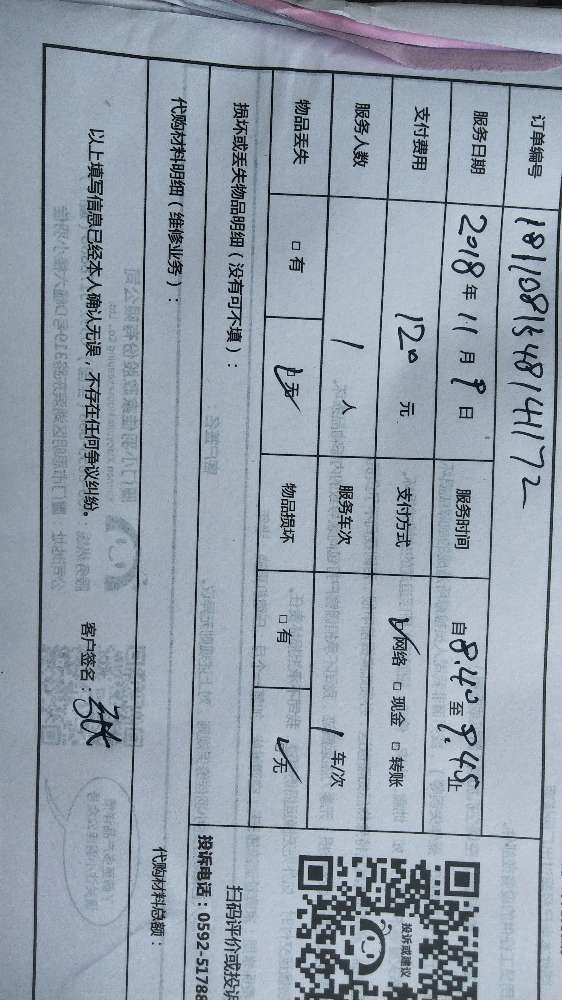 订单编号 181108154814172
服务日期 2018年11月9日 服务时间 自8.40至9.45止
支付费用 120元 支付方式 ☑网络 □现金 □转账
服务人数 1人 服务车次 1车/次
物品丢失 □有 ☑无 物品损坏 □有 ☑无
损坏或丢失物品明细（没有可不填）：
代购材料明细（维修业务）： 代购材料总额：
以上填写信息已经本人确认无误，不存在任何争议纠纷。 客户签名：张
投诉或建议
扫码评价或投诉
投诉电话：0592-51788